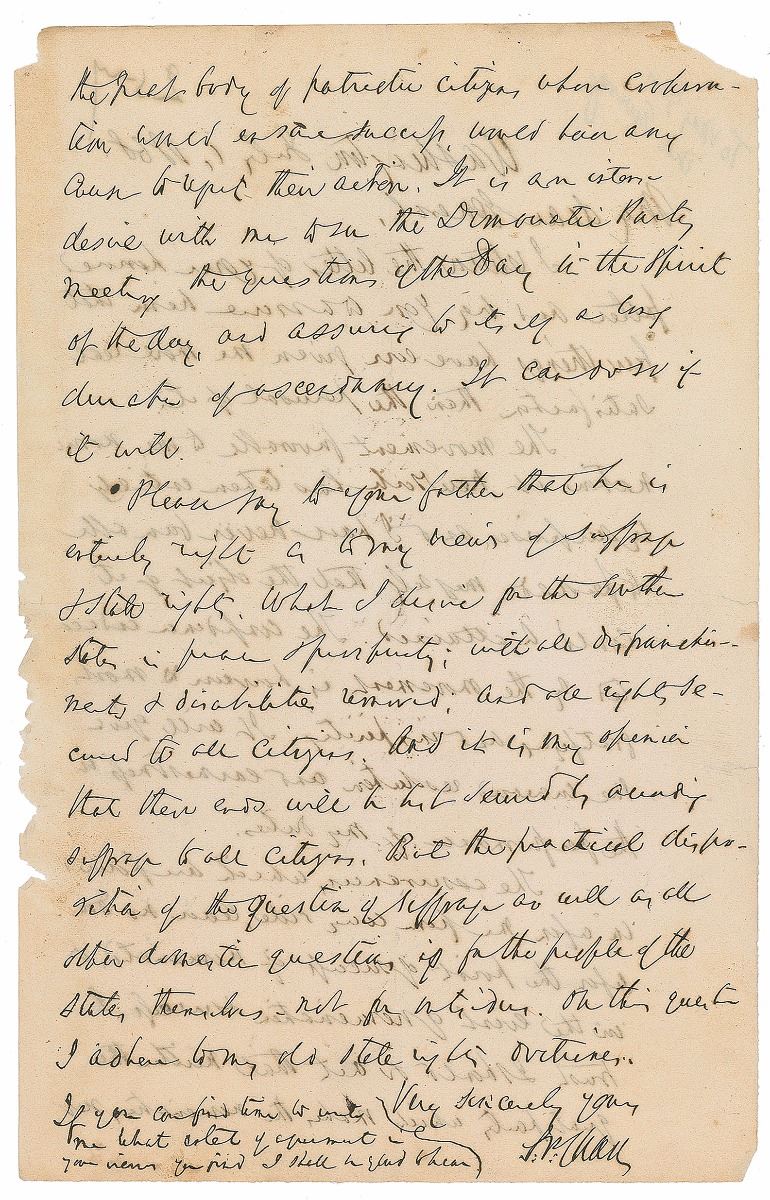 the great body of patriotic citizens whose coopera-
tion would ensure success, would have any
cause to regret their action. It is an intense
desire with me to see the Democratic Party
meeting the questions of the Day in the Spirit
of the day, and assuring to itself a long
duration of ascendancy. It can do so if
it will.
Please say to your father that he is
entirely right as to my views of Suffrage
& State rights. What I desire for the Southern
States is peace & prosperity; with all disfranchise-
ments & disabilities removed, and all rights se-
cured to all citizens. And it is my opinion
that these ends will be best secured by according
suffrage to all citizens. But the practical dispo-
sition of the question of Suffrage as well as all
other domestic questions is for the people of the
States themselves - not for outsiders. On this question
I adhere to my old State rights doctrines.
Very Sincerely yours
S. P. Chase
If you can find time to write
me what extent of agreement in
your views you find I shall be glad to hear